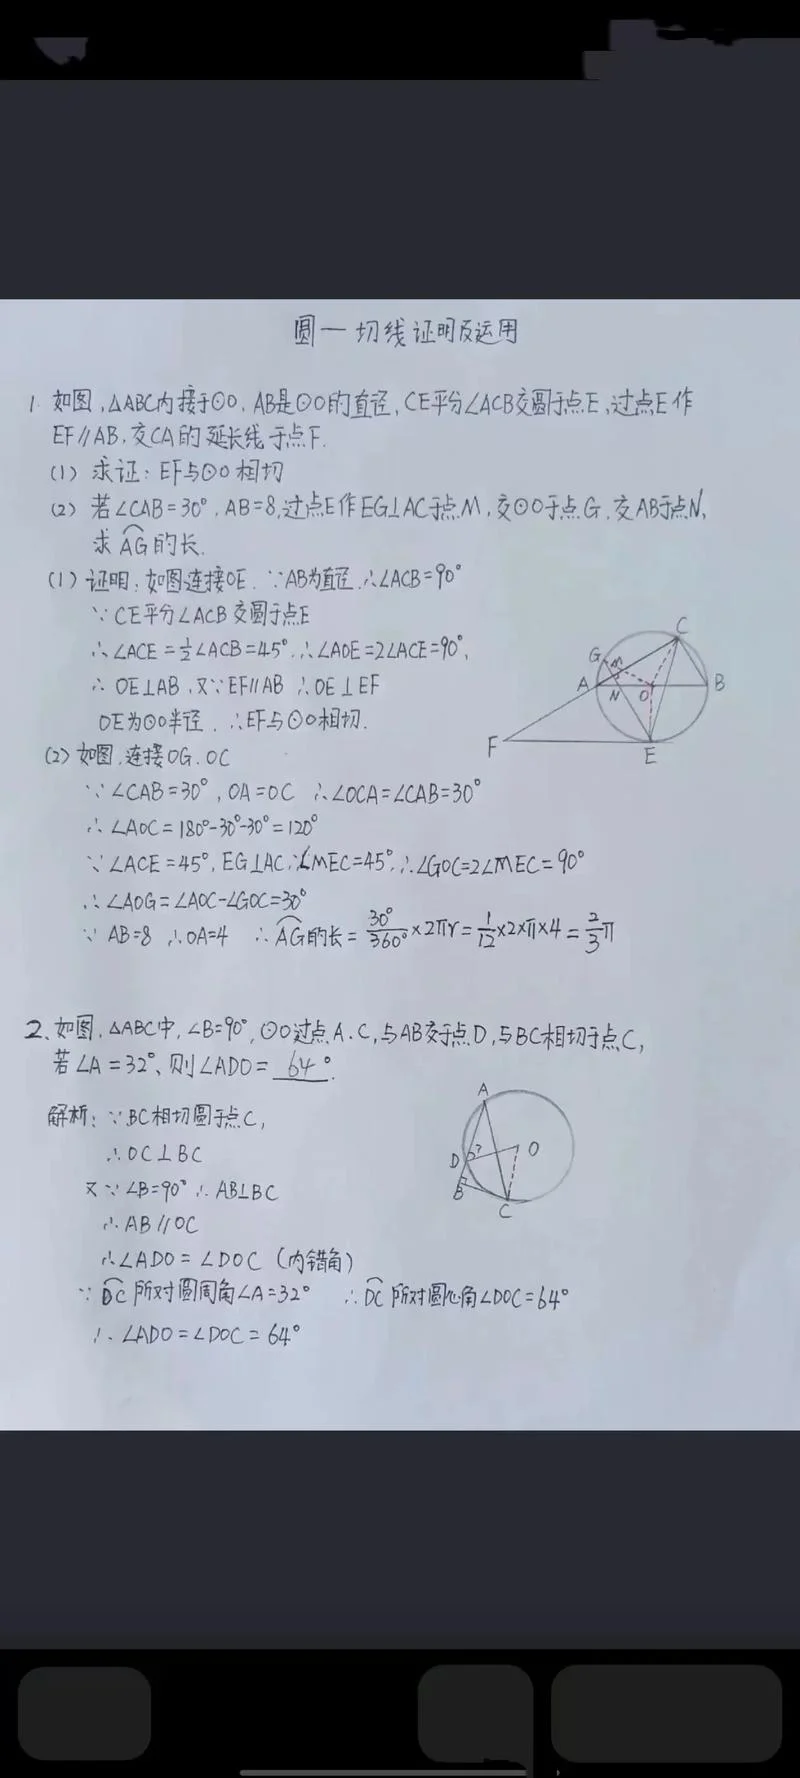 圆一切线证明及运用
1. 如图,△ABC内接于⊙O,AB是⊙O的直径,CE平分∠ACB交圆于点E,过点E作
EF∥AB,交CA的延长线于点F.
(1) 求证:EF与⊙O相切
(2) 若∠CAB=30°,AB=8,过点E作EG⊥AC于点M,交⊙O于点G,交AB于点N,
求AG⌒的长.
(1) 证明:如图连接OE.∵AB为直径.∴∠ACB=90°
∵CE平分∠ACB交圆于点E
∴∠ACE=½∠ACB=45°.∴∠AOE=2∠ACE=90°,
∴OE⊥AB,又∵EF∥AB ∴OE⊥EF
OE为⊙O半径.∴EF与⊙O相切.
(2) 如图,连接OG.OC
∵∠CAB=30°,OA=OC ∴∠OCA=∠CAB=30°
∴∠AOC=180°-30°-30°=120°
∵∠ACE=45°,EG⊥AC,∴∠MEC=45°,∴∠GOC=2∠MEC=90°
∴∠AOG=∠AOC-∠GOC=30°
∵AB=8 ∴OA=4 ∴AG⌒的长=30°/360°×2πr=1/12×2×π×4=2/3π
G M C
A N O B
F E
2、如图,△ABC中,∠B=90°,⊙O过点A.C,与AB交于点D,与BC相切于点C,
若∠A=32°,则∠ADO=64°.
解析:∵BC相切圆于点C,
∴OC⊥BC
又∵∠B=90°∴AB⊥BC
∴AB∥OC
∴∠ADO=∠DOC(内错角)
∵DC⌒所对圆周角∠A=32° ∴DC⌒所对圆心角∠DOC=64°
∴∠ADO=∠DOC=64°
A
D ? O
B
C